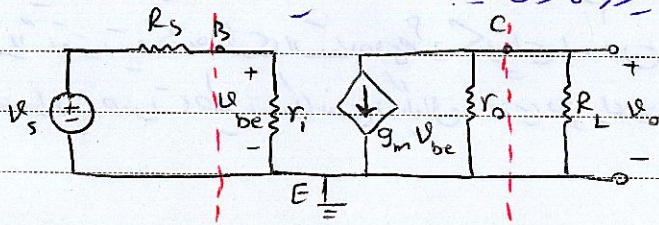 R_s B C
+ + 
v_s v_be r_i g_m v_be r_o R_L v_o
- -
E